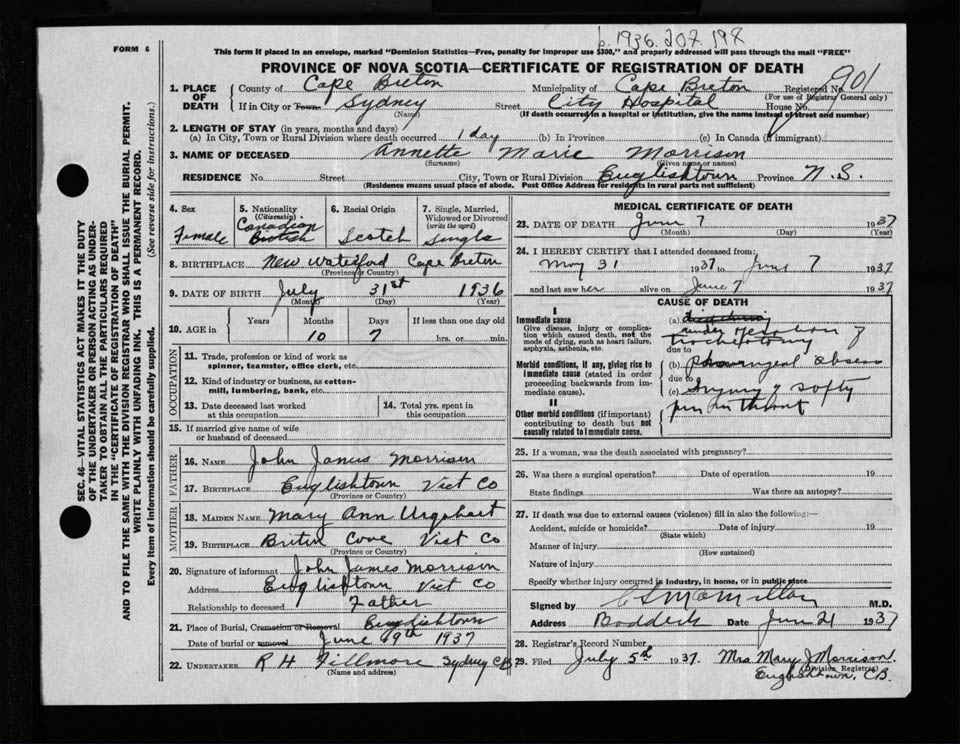 b. 1936. 207. 198
FORM 6
This form if placed in an envelope, marked "Dominion Statistics—Free, penalty for improper use $300," and properly addressed will pass through the mail "FREE"
PROVINCE OF NOVA SCOTIA—CERTIFICATE OF REGISTRATION OF DEATH
1. PLACE OF DEATH County of Cape Breton Municipality of Cape Breton Registered No. 901
(For use of Registrar General only)
If in City or Town Sydney Street City Hospital House No.
(Name) (If death occurred in a hospital or institution, give the name instead of street and number)
2. LENGTH OF STAY (in years, months and days)
(a) In City, Town or Rural Division where death occurred 1 day (b) In Province (c) In Canada (if immigrant)
3. NAME OF DECEASED Annette Marie Morrison
(Surname) (Given name or names)
RESIDENCE No. Street City, Town or Rural Division Englishtown Province N.S.
(Residence means usual place of abode. Post Office Address for residents in rural parts not sufficient)
4. Sex Female
5. Nationality (Citizenship) Canadian British
6. Racial Origin Scotch
7. Single, Married, Widowed or Divorced (write the word) Single
8. BIRTHPLACE New Waterford Cape Breton
(Province or Country)
9. DATE OF BIRTH July 31st 1936
(Month) (Day) (Year)
10. AGE in Years Months Days If less than one day old
10 7 hrs. or min.
OCCUPATION
11. Trade, profession or kind of work as spinner, teamster, office clerk, etc.
12. Kind of industry or business, as cotton-mill, lumbering, bank, etc.
13. Date deceased last worked at this occupation
14. Total yrs. spent in this occupation
15. If married give name of wife or husband of deceased
FATHER
16. NAME John James Morrison
17. BIRTHPLACE Englishtown Vict Co
(Province or Country)
MOTHER
18. MAIDEN NAME Mary Ann Urquhart
19. BIRTHPLACE Briton Cove Vict Co
(Province or Country)
20. Signature of informant John James Morrison
Address Englishtown Vict Co
Relationship to deceased Father
21. Place of Burial, Cremation or Removal Englishtown
Date of burial or removal June 9th 1937
22. UNDERTAKER R H Fillmore Sydney CB
(Name and address)
MEDICAL CERTIFICATE OF DEATH
23. DATE OF DEATH June 7 1937
(Month) (Day) (Year)
24. I HEREBY CERTIFY that I attended deceased from:
May 31 1937 to June 7 1937
and last saw her alive on June 7 1937
CAUSE OF DEATH
I
Immediate cause
Give disease, injury or complication which caused death, not the mode of dying, such as heart failure, asphyxia, asthenia, etc.
(a) under
due to
Morbid conditions, if any, giving rise to immediate cause (stated in order proceeding backwards from immediate cause).
(b) pharyngeal abscess
due to
(c) Injury of safty
pin in throat
II
Other morbid conditions (if important) contributing to death but not causally related to immediate cause.
25. If a woman, was the death associated with pregnancy?
26. Was there a surgical operation? Date of operation 19
State findings Was there an autopsy?
27. If death was due to external causes (violence) fill in also the following:—
Accident, suicide or homicide? Date of injury 19
(State which)
Manner of injury
(How sustained)
Nature of injury
Specify whether injury occurred in industry, in home, or in public place
Signed by C L McMillan M.D.
Address Baddeck Date Jun 21 1937
28. Registrar's Record Number
29. Filed July 5th 1937. Mrs Mary J Morrison.
(Division Registrar)
Englishtown, C.B.
SEC. 46—VITAL STATISTICS ACT MAKES IT THE DUTY
OF THE UNDERTAKER OR PERSON ACTING AS UNDER-
TAKER TO OBTAIN ALL THE PARTICULARS REQUIRED
IN THE "CERTIFICATE OF REGISTRATION OF DEATH"
AND TO FILE THE SAME WITH THE DIVISION REGISTRAR WHO SHALL ISSUE THE BURIAL PERMIT.
WRITE PLAINLY WITH UNFADING INK. THIS IS A PERMANENT RECORD.
Every item of information should be carefully supplied. (See reverse side for instructions.)